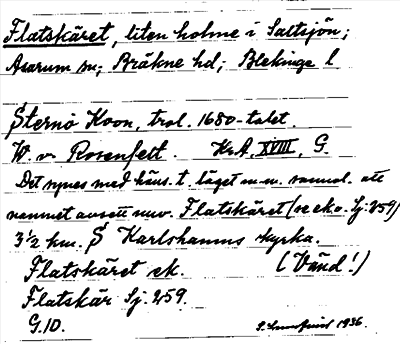 Flatskäret, liten holme i Saltsjön;
Asarum sn; Bräkne hd; Blekinge l
Sternö Koon, trol. 1680-talet.
W. v. Rosenfelt. KrA XVIII, G.
Det synes med häns. t. läget m.m. sannol. att
namnet avsett nuv. Flatskäret (se eko. Sj: 259)
3½ km. S Karlshamns kyrka.
Flatskäret ek. (Vänd!)
Flatskär Sj. 259.
G.10. 1936.